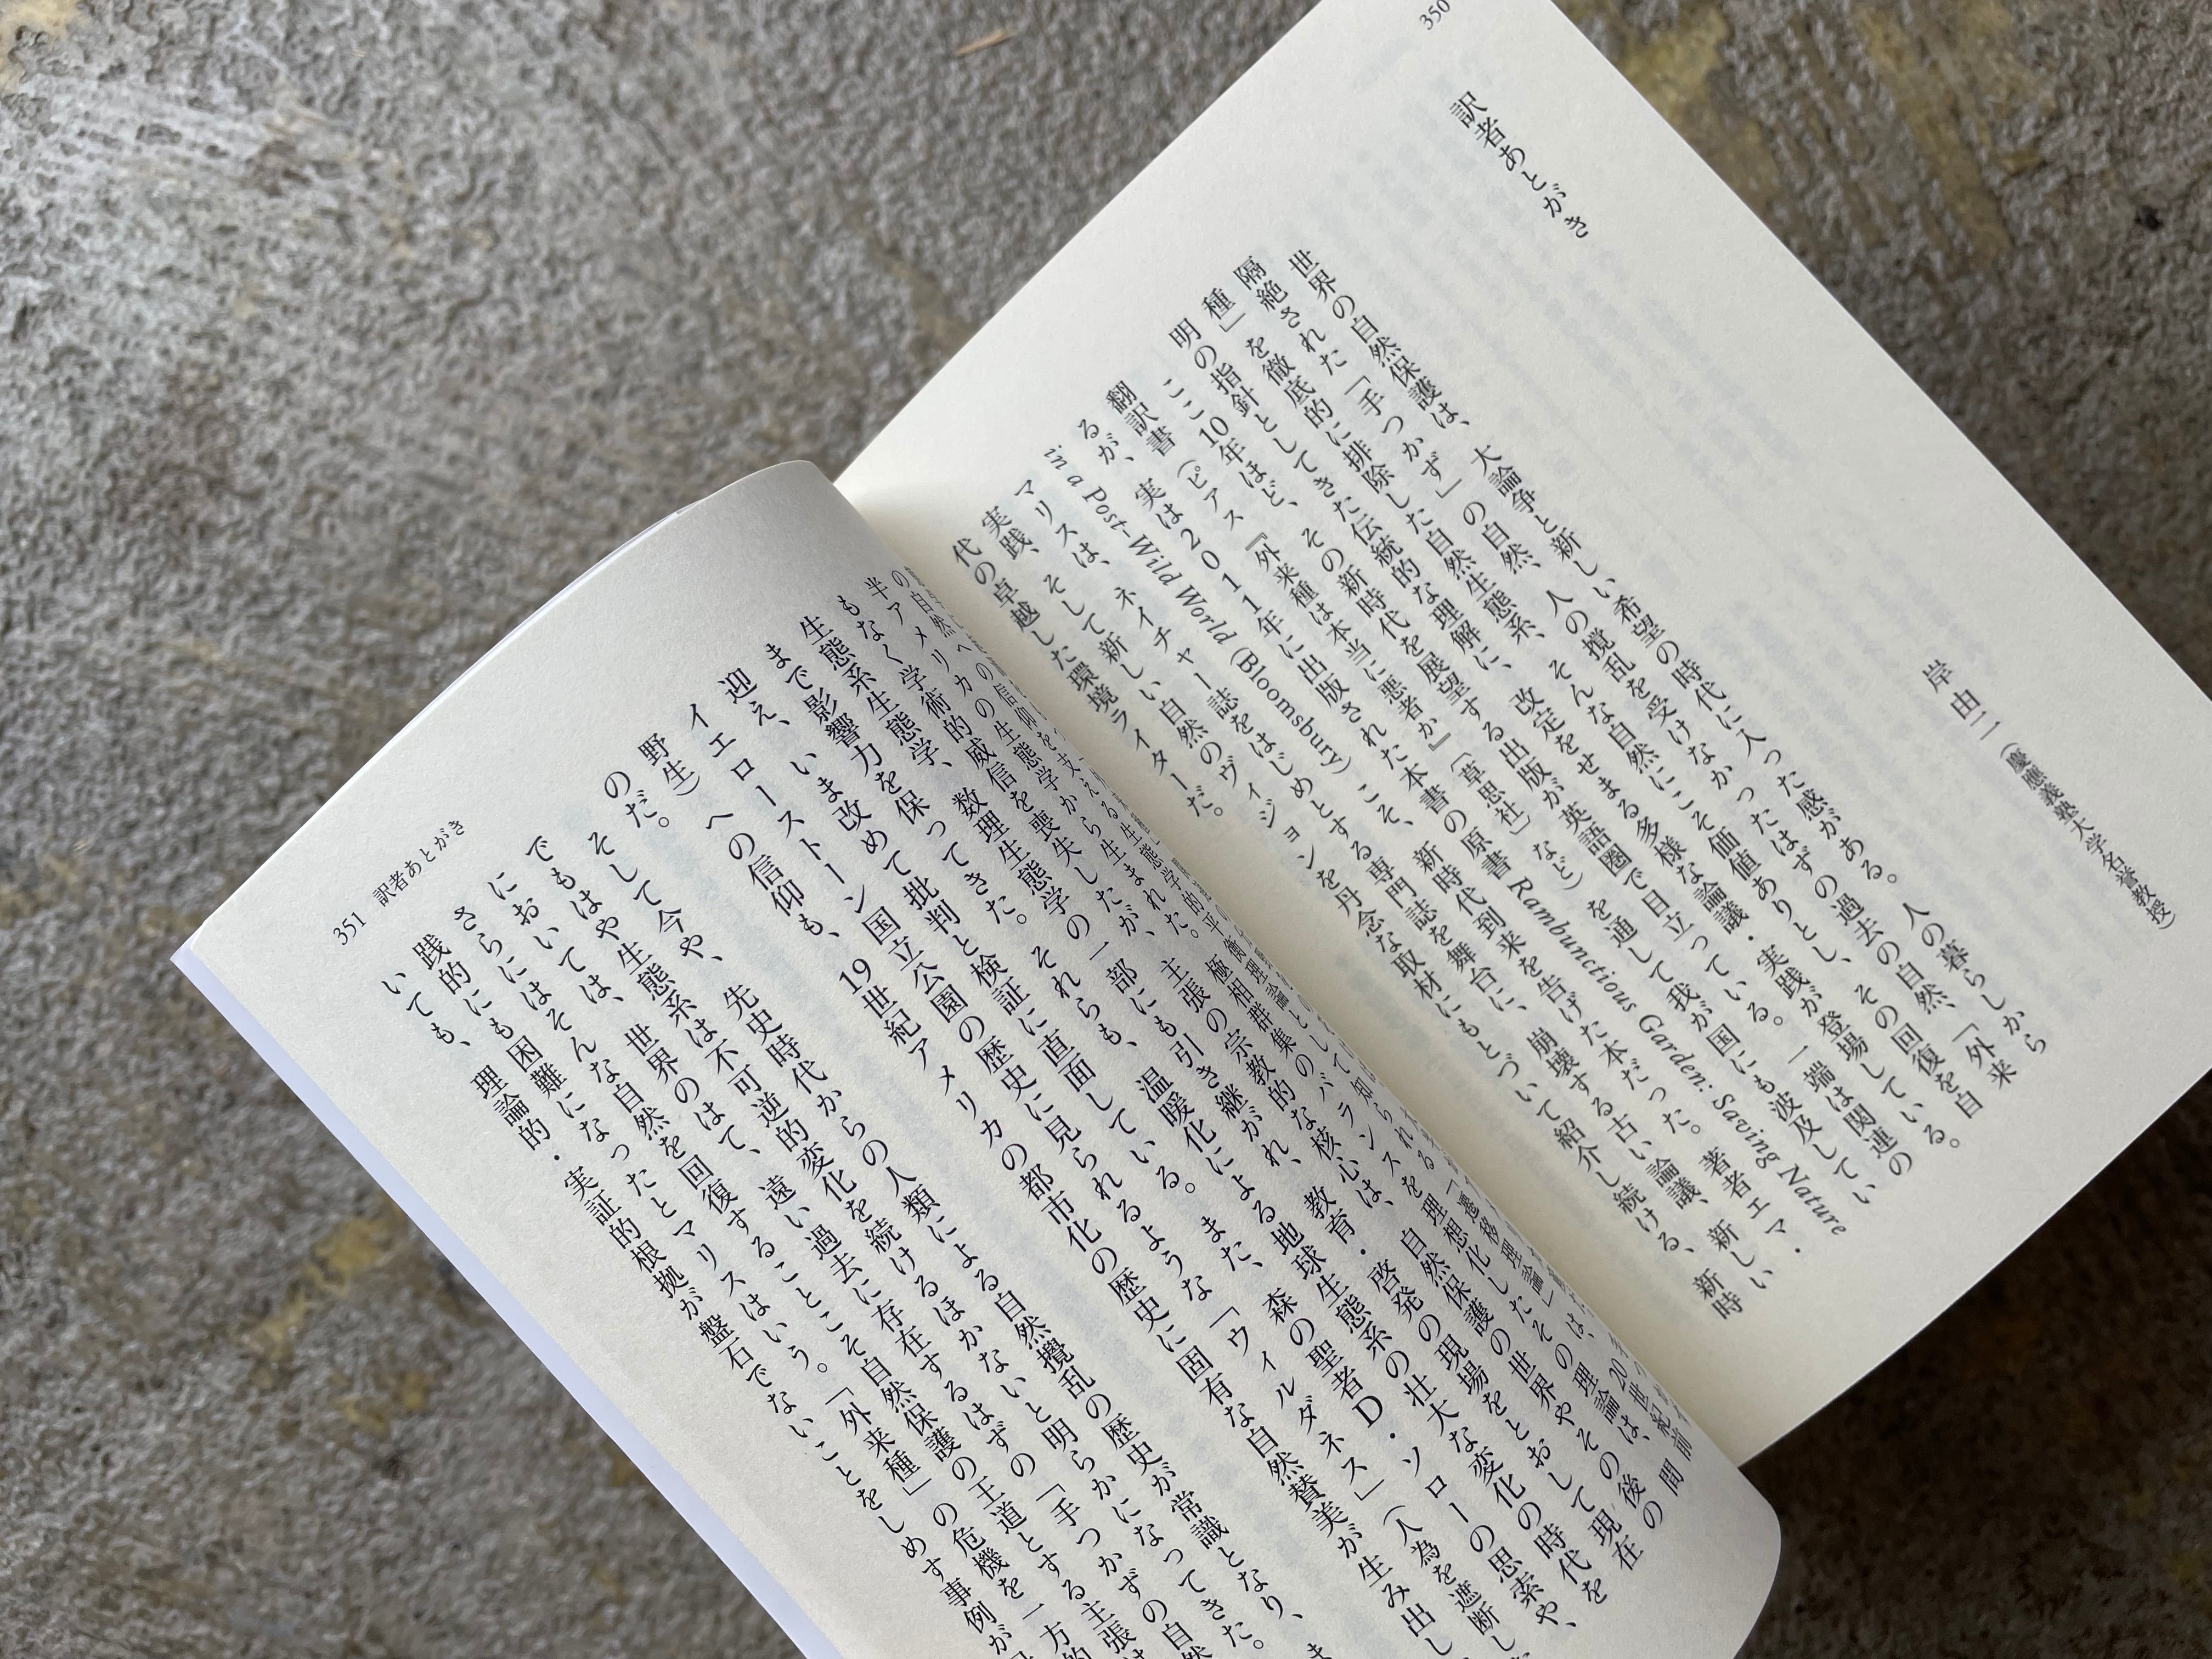 350
訳者あとがき
岸 由二（慶應義塾大学名誉教授）
世界の自然保護は、大論争と新しい希望の時代に入った感がある。人の暮らしから
隔絶された「手つかず」の自然、人の撹乱を受けなかったはずの過去の自然、「外来
種」を徹底的に排除した自然生態系、そんな自然にこそ価値ありとし、その回復を自
明の指針としてきた伝統的な理解に、改定をせまる多様な論議・実践が登場している。
ここ10年ほど、その新時代を展望する出版が英語圏で目立っている。一端は関連の
翻訳書（ピアス『外来種は本当に悪者か』〔草思社〕など）を通して我が国にも波及してい
るが、実は2011年に出版された本書の原書 Rambunctious Garden: Saving Nature
in a Post-Wild World (Bloomsbury) こそ、新時代到来を告げた本だった。著者エマ・
マリスは、ネイチャー誌をはじめとする専門誌を舞台に、崩壊する古い論議、新しい
実践、そして新しい自然のヴィジョンを丹念な取材にもとづいて紹介し続ける、新時
代の卓越した環境ライターだ。
の自然への信仰を支える生態学的平衡理論として知られる「遷移理論」は、20世紀前
半アメリカの生態学から生まれた。極相群集のバランスを理想化したその理論は、
もなく学術的威信を喪失したが、主張の宗教的な核心は、自然保護の世界やその後の
生態系生態学、数理生態学の一部にも引き継がれ、教育・啓発の現場をとおして現在
まで影響力を保ってきた。それらも、温暖化による地球生態系の壮大な変化の時代を
迎え、いま改めて批判と検証に直面している。また、森の聖者D・ソローの思索や、
イエローストーン国立公園の歴史に見られるような「ウィルダネス」（人為を遮断し
野生）への信仰も、19世紀アメリカの都市化の歴史に固有な自然賛美が生み出し
のだ。
そして今や、先史時代からの人類による自然撹乱の歴史が常識となり、
でもはや生態系は不可逆的変化を続けるほかないと明らかになってきた。
においては、世界のはて、遠い過去に存在するはずの「手つかずの自然
さらにはそんな自然を回復することこそ自然保護の王道とする主張は
践的にも困難になったとマリスはいう。「外来種」の危機を一方的
いても、理論的・実証的根拠が盤石でないことをしめす事例が
351 訳者あとがき